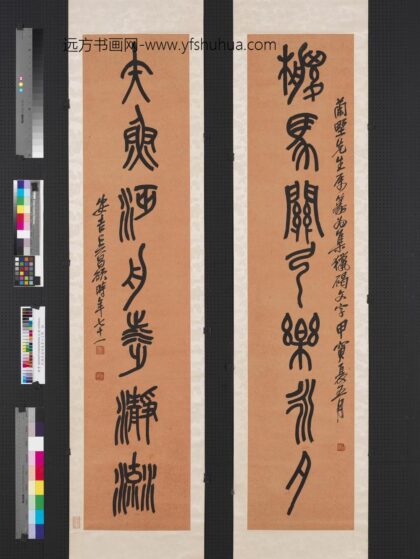 远方书画网-www.yfshuhua.com
馬關弓樂永夕
蘭墅先生屬篆為集獵碣文字甲寅夏五月
魚舟瀞淵
安吉吳昌碩時年七十一